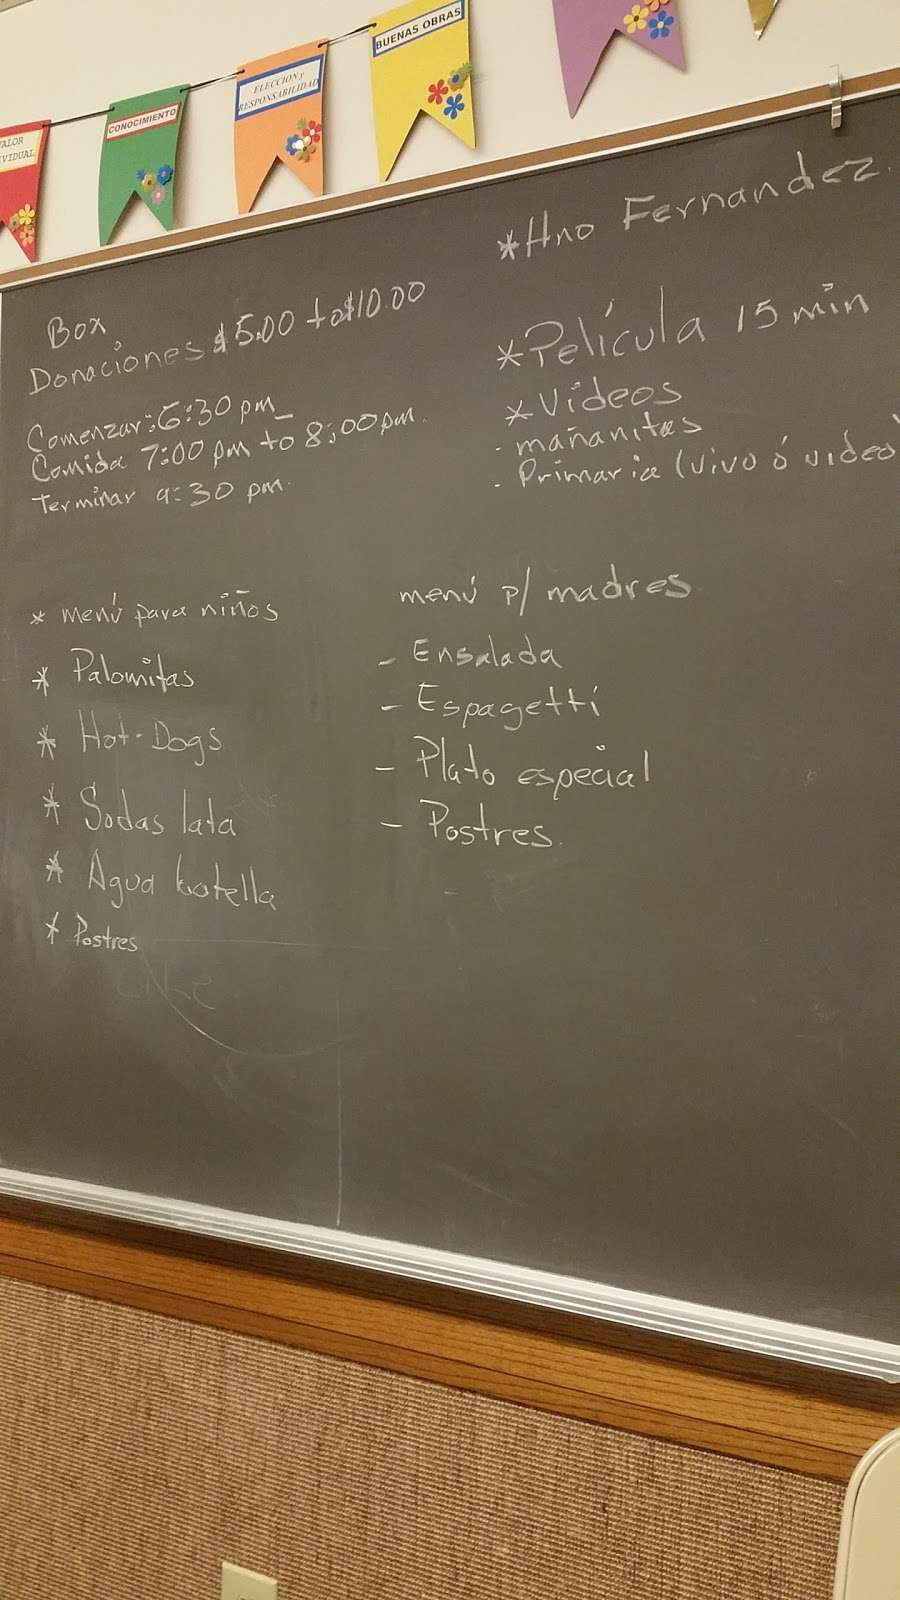 VALOR
CONOCIMIENTO
ELECCION y
RESPONSABILIDAD
BUENAS OBRAS
*Hno Fernandez.
Box
Donaciones $5.00 to $10.00
Comenzar: 6:30 pm
Comida 7:00 pm to 8:00 pm.
Terminar 9:30 pm.
*Película 15 min
*Videos
- mañanitas
- Primaria (vivo ó video)
* menú para niños
* Palomitas
* Hot-Dogs
* Sodas lata
* Agua botella
* Postres
menú p/ madres
- Ensalada
- Espagetti
- Plato especial
- Postres.